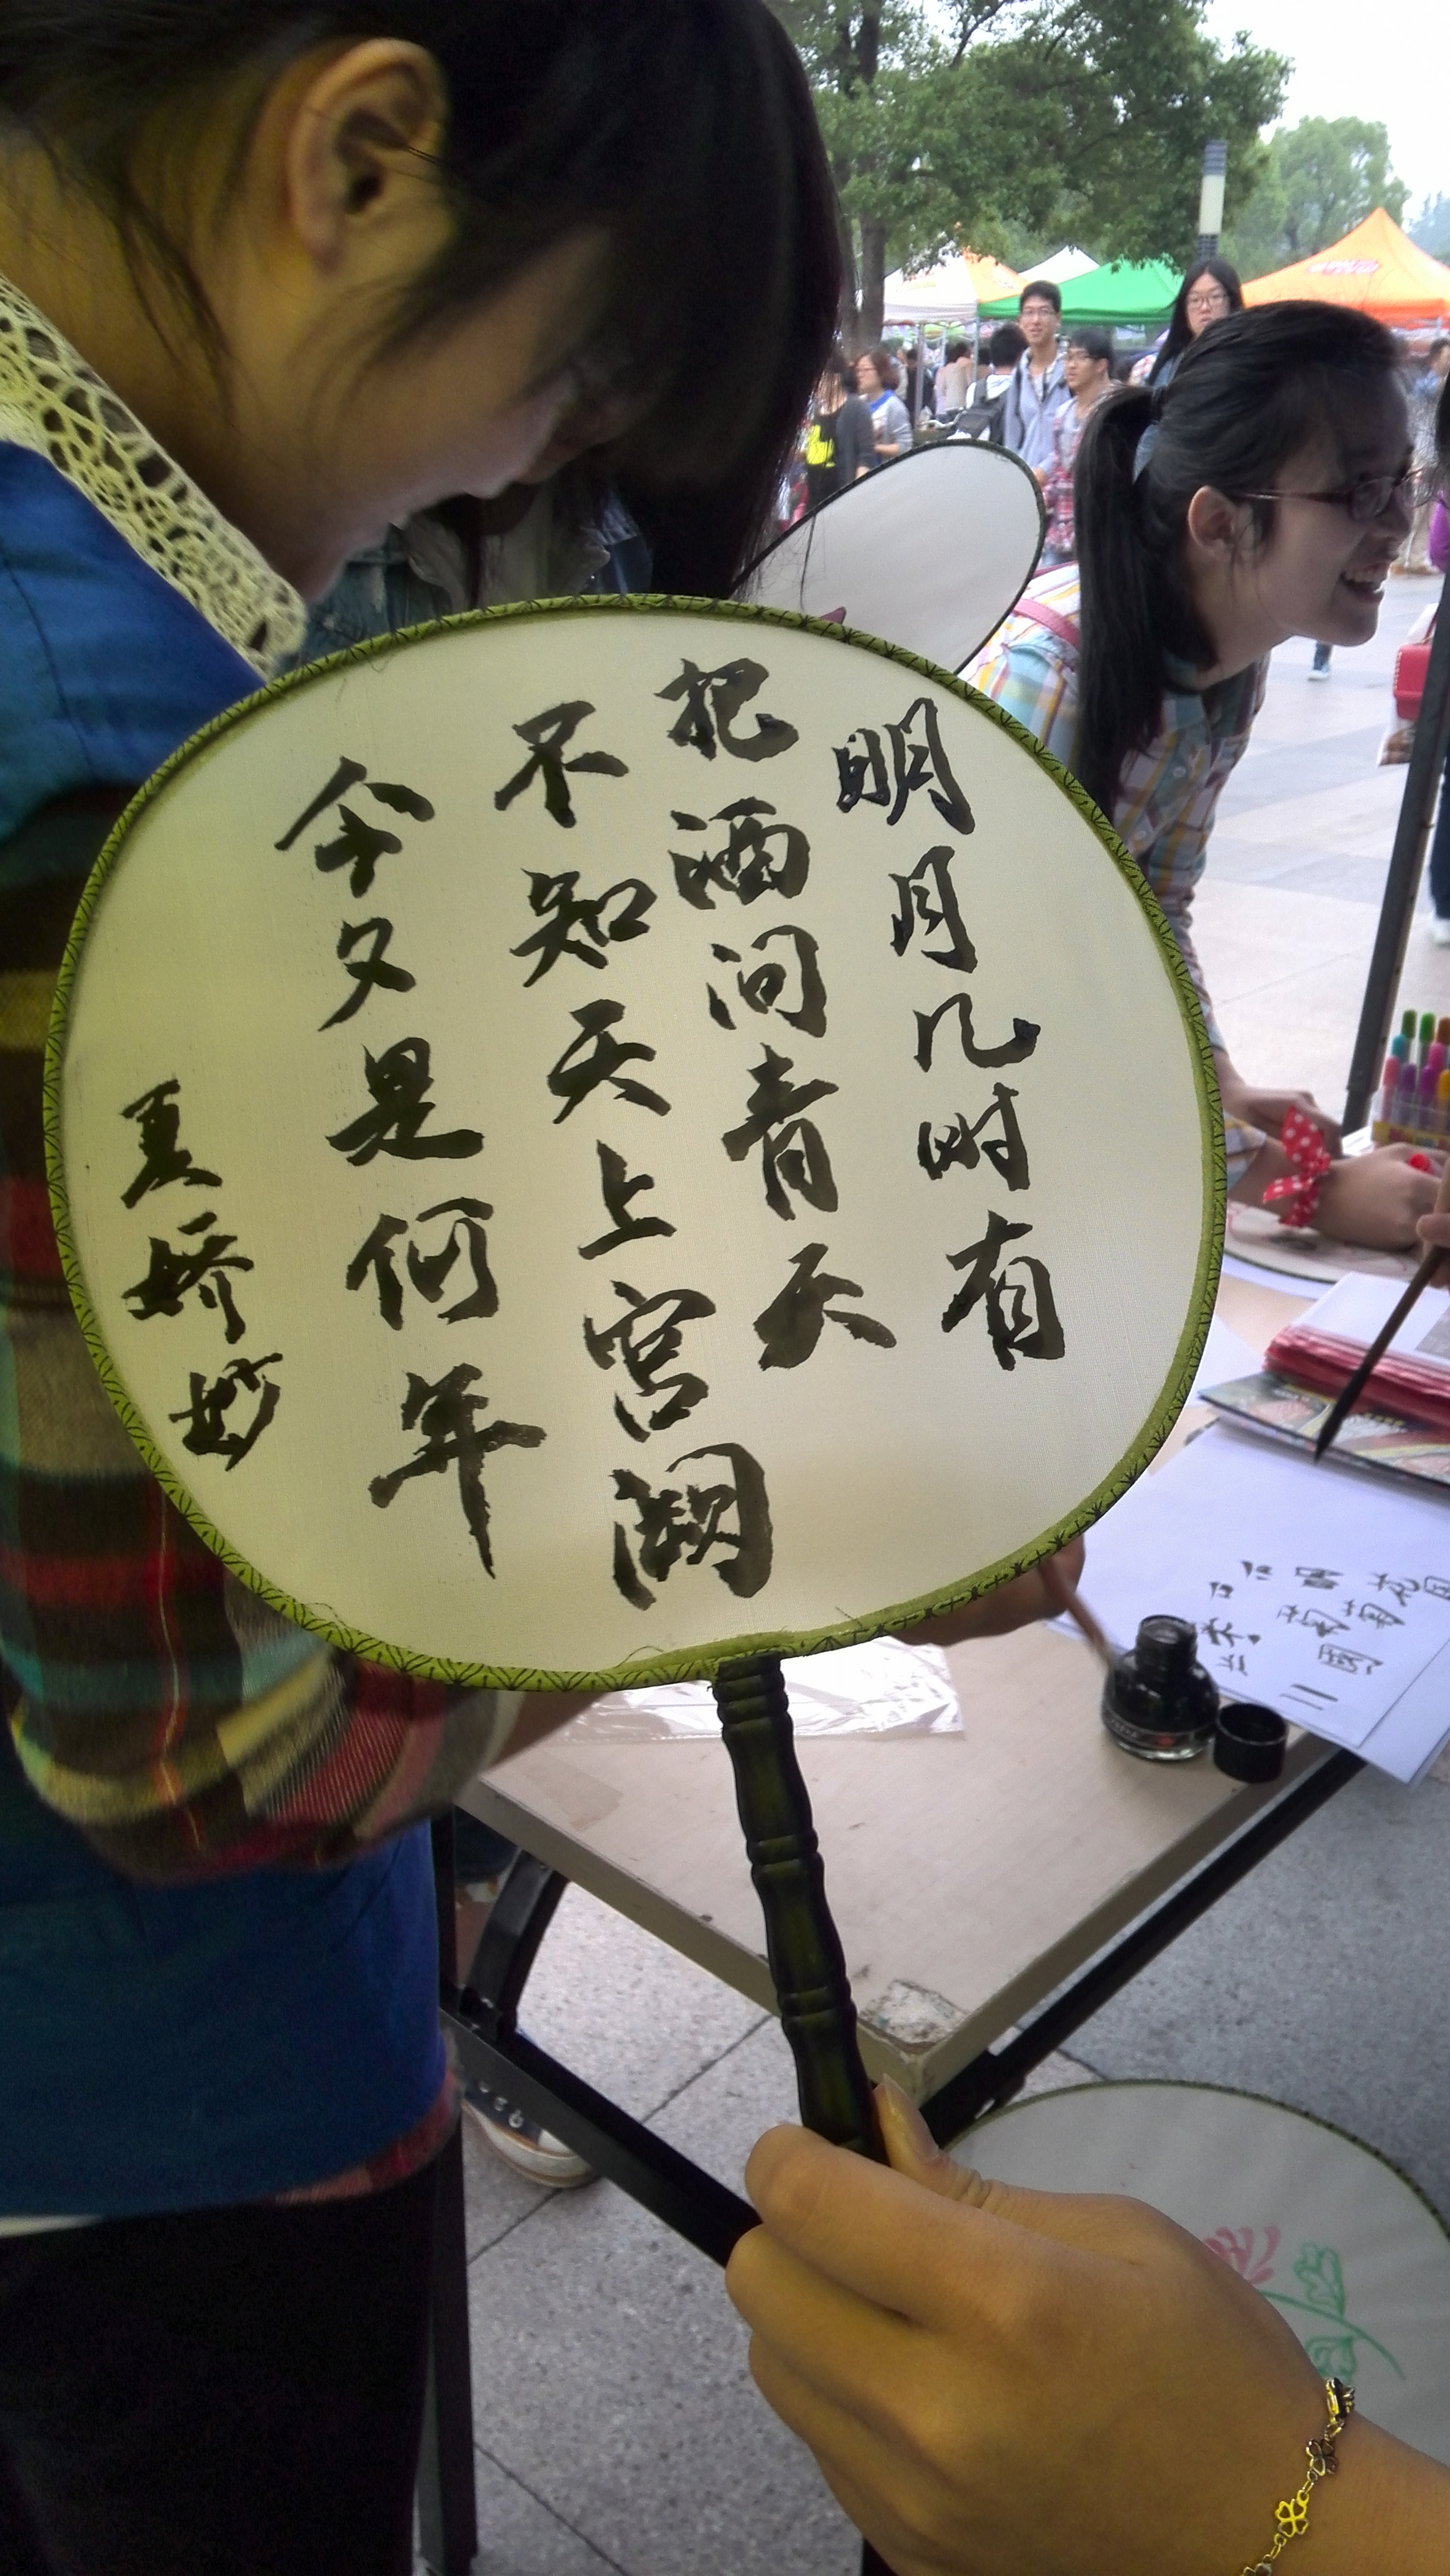 明月几时有
把酒问青天
不知天上宫阙
今夕是何年
夏娇妙